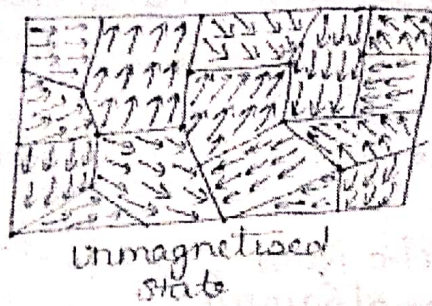 Unmagnetised
state